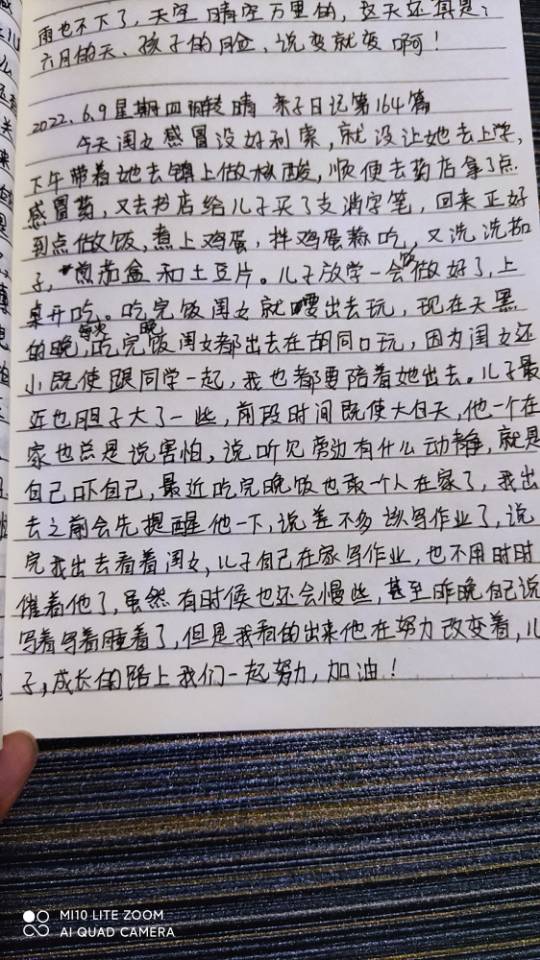 雨也不下了，天空晴空万里的，这天还真是：
六月的天、孩子的脸、说变就变啊！
2022.6.9星期四 阴转晴 亲子日记第164篇
今天闺女感冒没好利索，就没让她去上学，
下午带着她去镇上做核酸，顺便去药店拿了点
感冒药，又去书店给儿子买了支消字笔，回来正好
到点做饭，煮上鸡蛋，拌鸡蛋蒜吃，又洗洗茄
子，煎茄盒和土豆片。儿子放学一会饭做好了，上
桌开吃。吃完饭闺女就要出去玩，现在天黑
的晚，每天吃完晚饭闺女都出去在胡同口玩，因为闺女还
小既使跟同学一起，我也都要陪着她出去。儿子最
近也胆子大了一些，前段时间既使大白天，他一个在
家也总是说害怕，说听见旁边有什么动静，就是
自己吓自己，最近吃完晚饭也敢一个人在家了，我出
去之前会先提醒他一下，说差不多该写作业了，说
完我出去看着闺女，儿子自己在家写作业，也不用时时
催着他了，虽然有时候也还会慢些，甚至昨晚自己说
写着写着睡着了，但是我看的出来他在努力改变着，儿
子，成长的路上我们一起努力，加油！
MI 10 LITE ZOOM
AI QUAD CAMERA